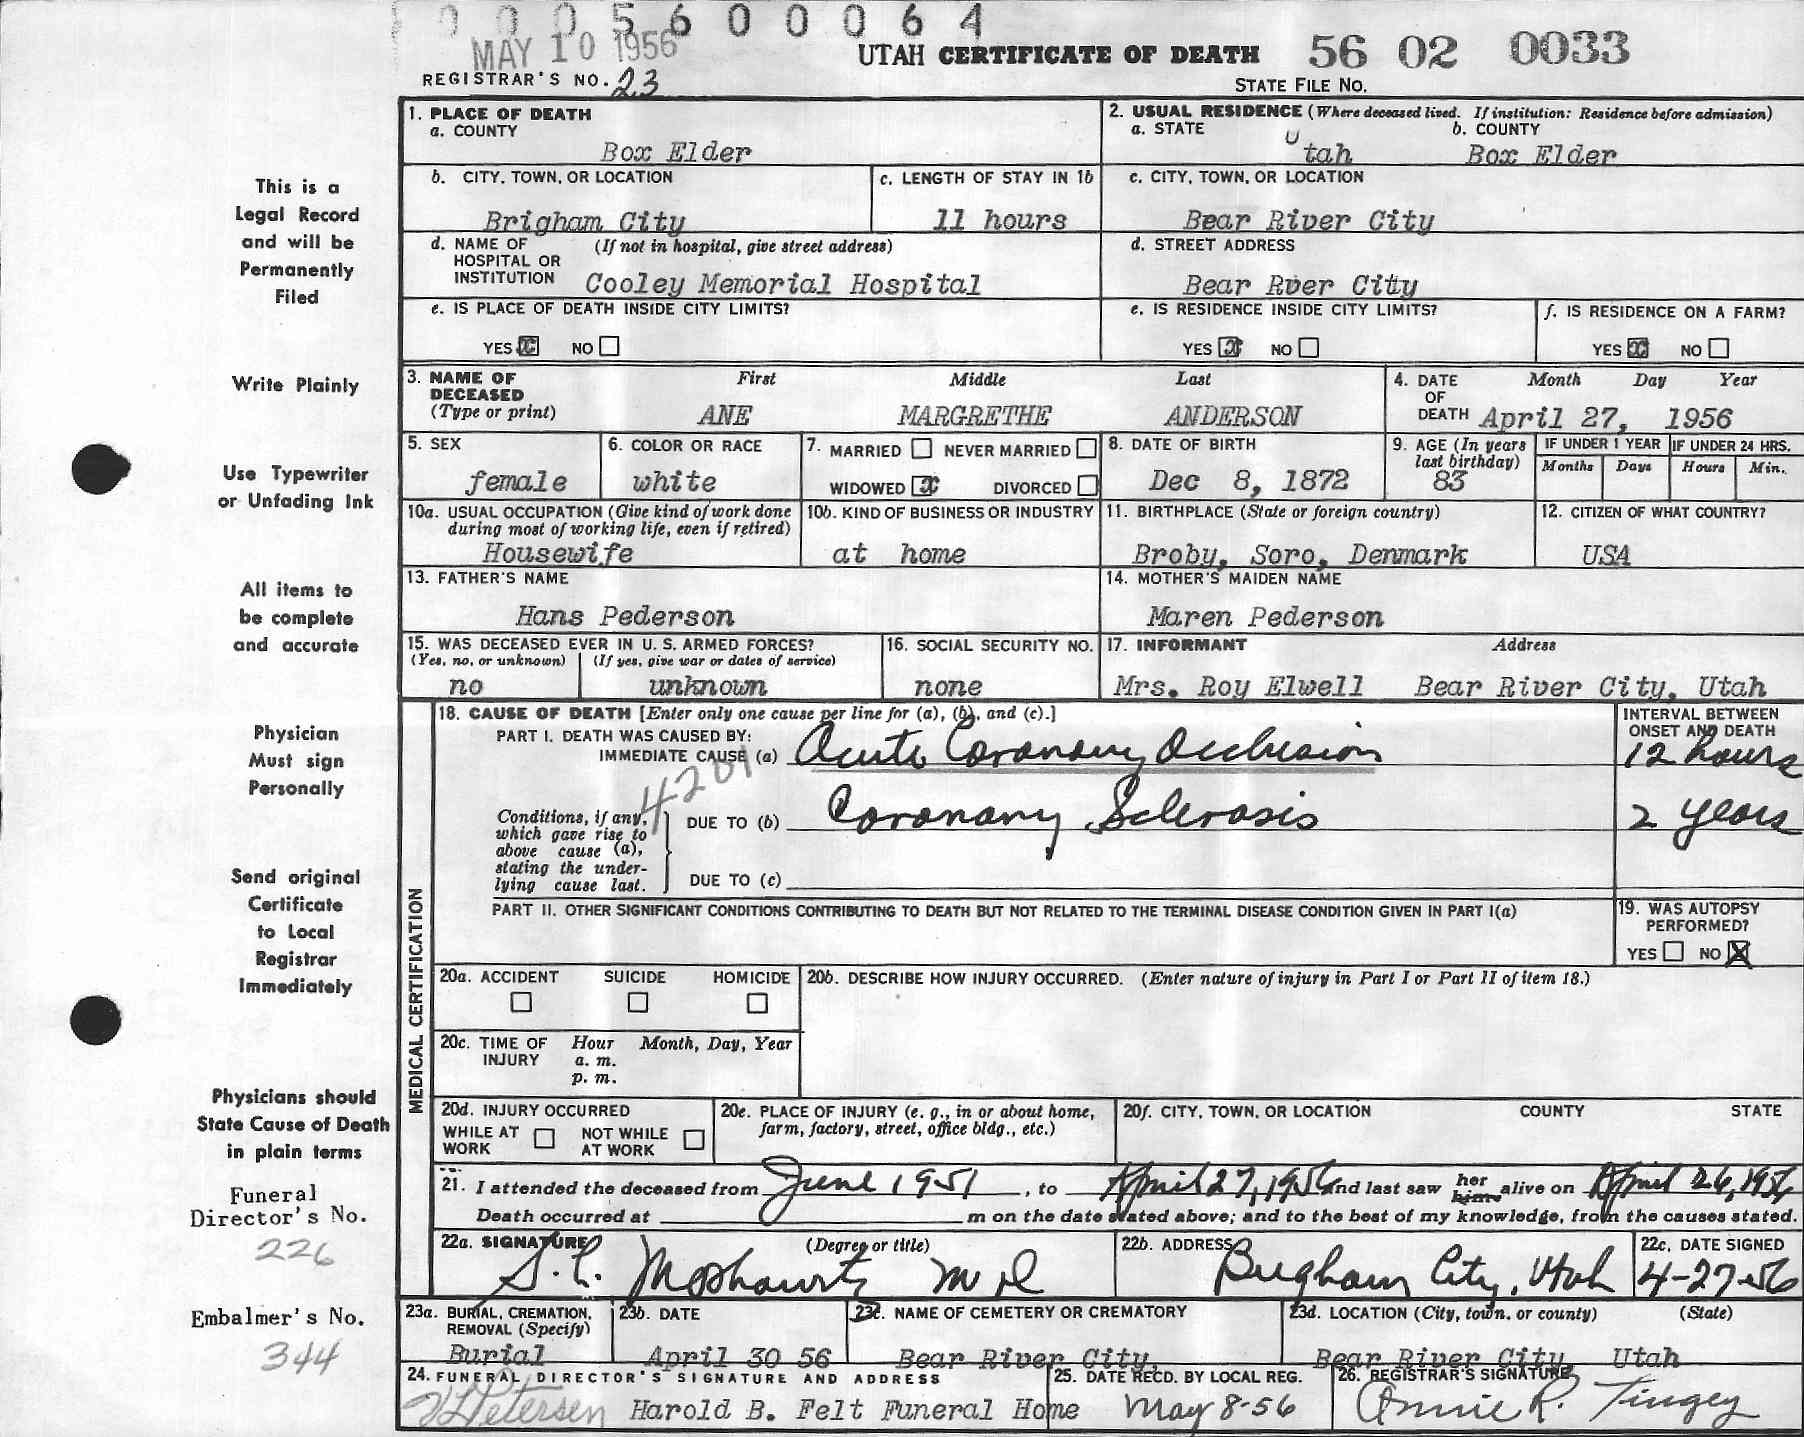 00056 0 0 0 6 4
MAY 10 1956
UTAH CERTIFICATE OF DEATH 56 02 0033
REGISTRAR'S NO. 23
STATE FILE NO.
This is a
Legal Record
and will be
Permanently
Filed
Write Plainly
Use Typewriter
or Unfading Ink
All items to
be complete
and accurate
Physician
Must sign
Personally
Send original
Certificate
to Local
Registrar
Immediately
Physicians should
State Cause of Death
in plain terms
Funeral
Director's No.
226
Embalmer's No.
344
1. PLACE OF DEATH
a. COUNTY
Box Elder
2. USUAL RESIDENCE (Where deceased lived. If institution: Residence before admission)
a. STATE b. COUNTY
Utah Box Elder
b. CITY, TOWN, OR LOCATION
Brigham City
c. LENGTH OF STAY IN 1b
11 hours
c. CITY, TOWN, OR LOCATION
Bear River City
d. NAME OF (If not in hospital, give street address)
HOSPITAL OR
INSTITUTION Cooley Memorial Hospital
d. STREET ADDRESS
Bear Rver City
e. IS PLACE OF DEATH INSIDE CITY LIMITS?
YES x NO
e. IS RESIDENCE INSIDE CITY LIMITS?
YES x NO
f. IS RESIDENCE ON A FARM?
YES x NO
3. NAME OF First Middle Last
DECEASED
(Type or print) ANE MARGRETHE ANDERSON
4. DATE Month Day Year
OF
DEATH April 27, 1956
5. SEX
female
6. COLOR OR RACE
white
7. MARRIED NEVER MARRIED
WIDOWED x DIVORCED
8. DATE OF BIRTH
Dec 8, 1872
9. AGE (In years
last birthday)
83
IF UNDER 1 YEAR IF UNDER 24 HRS.
Months Days Hours Min.
10a. USUAL OCCUPATION (Give kind of work done
during most of working life, even if retired)
Housewife
10b. KIND OF BUSINESS OR INDUSTRY
at home
11. BIRTHPLACE (State or foreign country)
Broby, Soro, Denmark
12. CITIZEN OF WHAT COUNTRY?
USA
13. FATHER'S NAME
Hans Pederson
14. MOTHER'S MAIDEN NAME
Maren Pederson
15. WAS DECEASED EVER IN U. S. ARMED FORCES?
(Yes, no, or unknown) (If yes, give war or dates of service)
no unknown
16. SOCIAL SECURITY NO.
none
17. INFORMANT Address
Mrs. Roy Elwell Bear River City, Utah
MEDICAL CERTIFICATION
18. CAUSE OF DEATH [Enter only one cause per line for (a), (b), and (c).]
PART I. DEATH WAS CAUSED BY:
IMMEDIATE CAUSE (a) Acute Coronary Occlusion
INTERVAL BETWEEN
ONSET AND DEATH
12 hours
4201
Conditions, if any,
which gave rise to
above cause (a),
stating the under-
lying cause last.
DUE TO (b) Coronary Sclerosis 2 years
DUE TO (c)
PART II. OTHER SIGNIFICANT CONDITIONS CONTRIBUTING TO DEATH BUT NOT RELATED TO THE TERMINAL DISEASE CONDITION GIVEN IN PART I(a)
19. WAS AUTOPSY
PERFORMED?
YES NO X
20a. ACCIDENT SUICIDE HOMICIDE
20b. DESCRIBE HOW INJURY OCCURRED. (Enter nature of injury in Part I or Part II of item 18.)
20c. TIME OF Hour Month, Day, Year
INJURY a. m.
p. m.
20d. INJURY OCCURRED
WHILE AT NOT WHILE
WORK AT WORK
20e. PLACE OF INJURY (e. g., in or about home,
farm, factory, street, office bldg., etc.)
20f. CITY, TOWN, OR LOCATION COUNTY STATE
21. I attended the deceased from June 1951, to April 27, 1956 and last saw her him alive on April 26, 1956
Death occurred at m on the date stated above; and to the best of my knowledge, from the causes stated.
22a. SIGNATURE (Degree or title)
S. L. Moskowitz M D
22b. ADDRESS
Brigham City, Utah
22c. DATE SIGNED
4-27-56
23a. BURIAL, CREMATION,
REMOVAL (Specify)
Burial
23b. DATE
April 30 56
23c. NAME OF CEMETERY OR CREMATORY
Bear River City,
23d. LOCATION (City, town, or county) (State)
Bear River City, Utah
24. FUNERAL DIRECTOR'S SIGNATURE AND ADDRESS
Petersen Harold B. Felt Funeral Home
25. DATE RECD. BY LOCAL REG.
May 8-56
26. REGISTRAR'S SIGNATURE
Annie R. Tingey